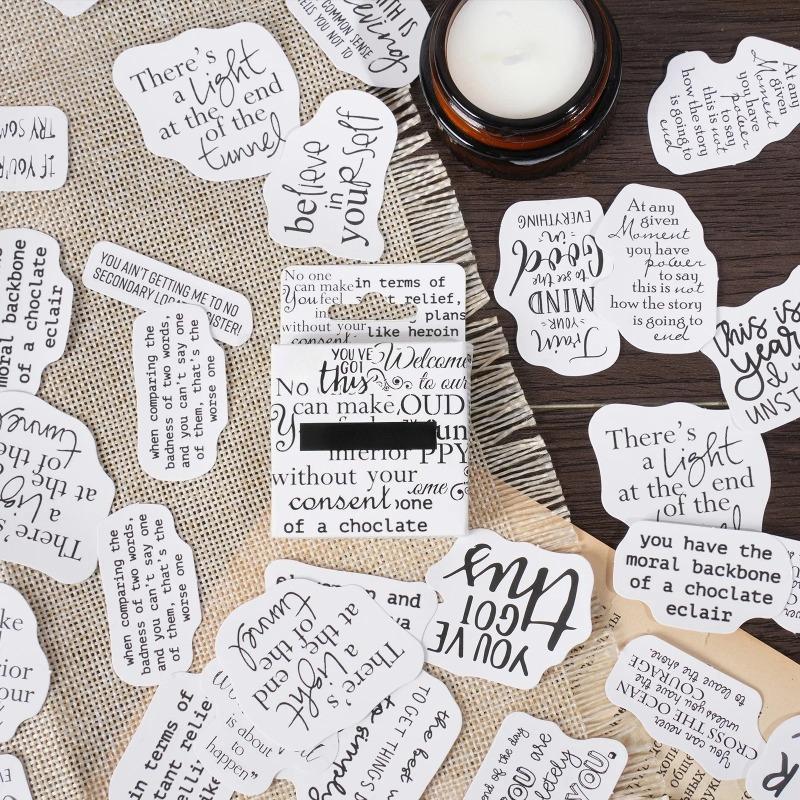 TELLS YOU NOT TO
COMMON SENSE
IS
There's
a light
at the end
of the
tunnel
believe
in
yourself
TRY
IF YOU'R
At any
given
Moment
you have
power
to say
this is not
how the story
is going to
end
Train
YOUR
MIND
to see the
Good
in
EVERYTHING
At any
given
Moment
you have
power
to say
this is not
how the story
is going to
end
this is
year
I
UNST
moral backbone
of a choclate
eclair
YOU AIN'T GETTING ME TO NO
SECONDARY
when comparing the
badness of two words,
and you can't say one
of them, that's the
worse one
No one
can make in terms of
You feel relief,
plans
without your like heroin
consent
YOU'VE
GOT
this
Welcome
to our
No
can make OUD
inferior PPY
without your
consent one
of a choclate
There's
a light
at the end
of the
tunnel
There's
a light
at the end
of the
you have the
moral backbone
of a choclate
eclair
when comparing the
badness of two words,
and you can't say one
of them, that's the
worse one
and
YOU'VE
GOT
this
There's
a light
at the end
of the
tunnel
You can never
CROSS THE OCEAN
unless you have the
COURAGE
to leave the shore.
in terms of
is about
to
happen"
the best
TO GET THINGS
to simply
end of the day
YOU are
YOU.